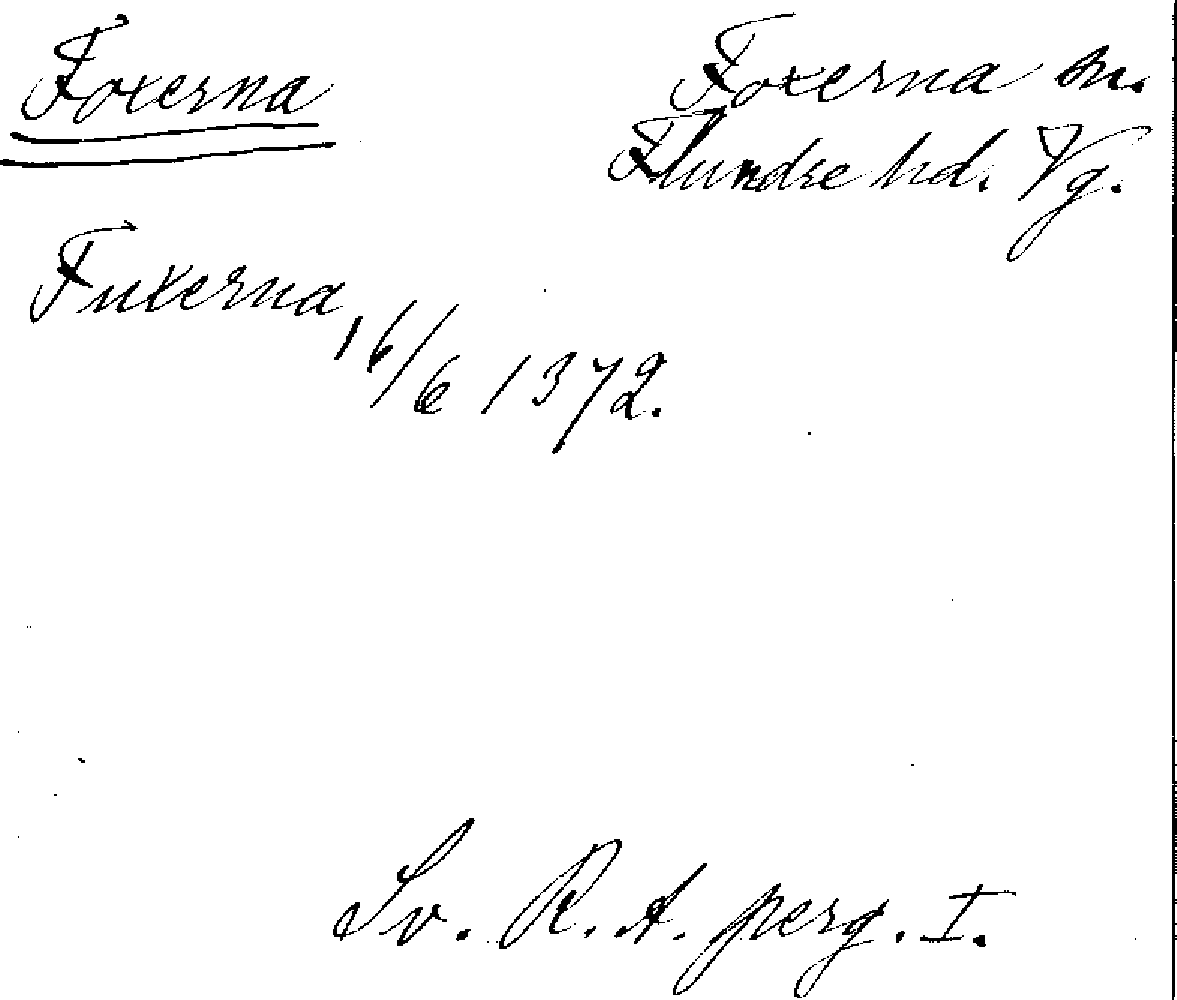 Foxerna
Foxerna sn.
Flundre hd. Vg.
Fuxerna 16/6 1372.
Sv. R. A. perg. I.